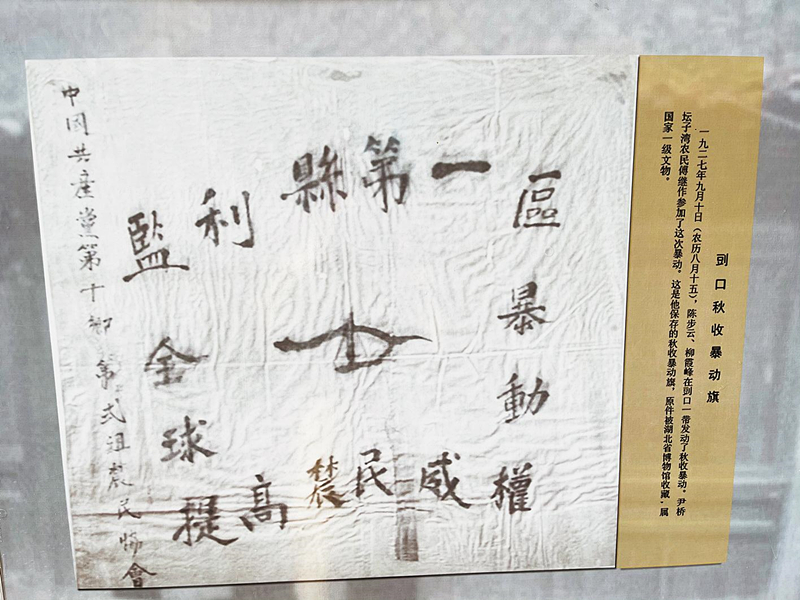 剅口秋收暴动旗
一九二七年九月十日（农历八月十五），陈步云、柳霞峰在剅口一带发动了秋收暴动。尹桥
坛子湾农民傅继作参加了这次暴动。这是他保存的秋收暴动旗，原件被湖北省博物馆收藏，属
国家一级文物。
監利縣第一區暴動
全球提高農民威權
中國共產黨第十鄉第弍組農民協會